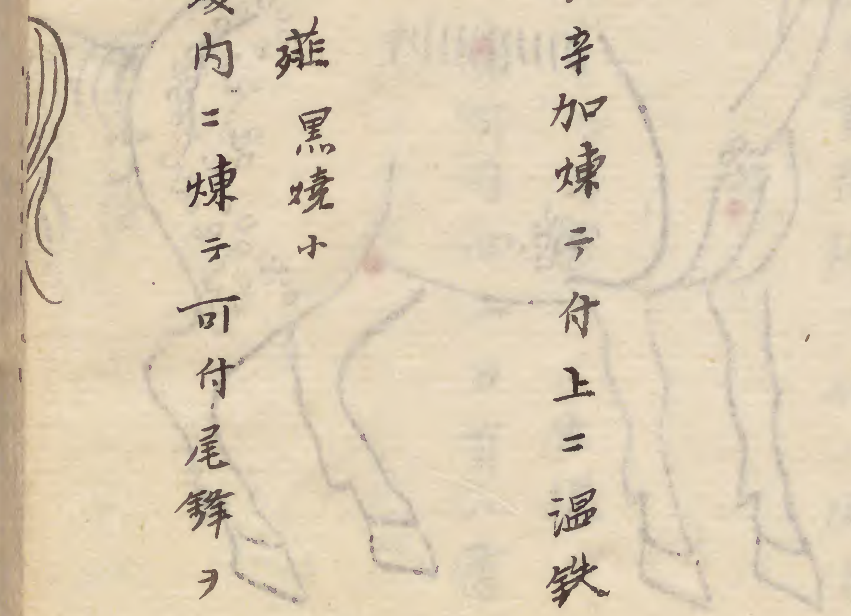 辛加煉テ付上ニ温鉄
薤 黒焼小
内ニ煉テ可付尾鋒ヲ